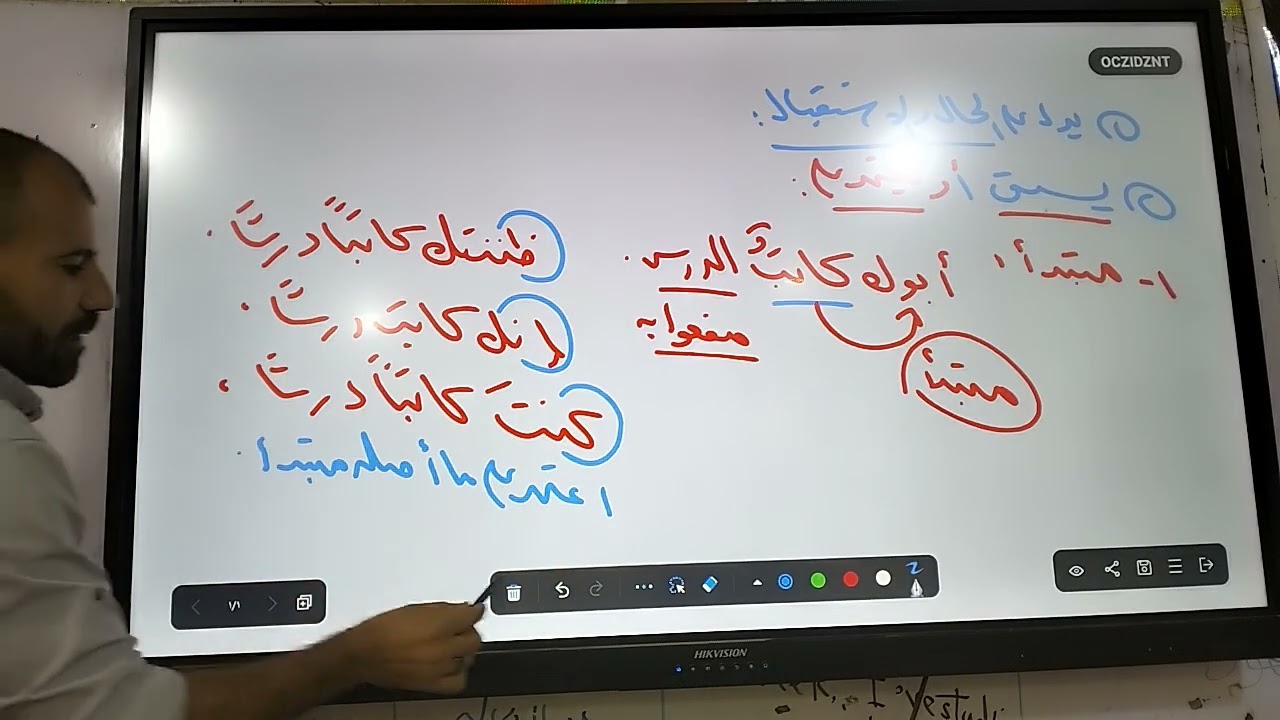 OCZIDZNT
① يدل على الحال والاستقبال.
② يسبق أو يعتمد على:
١- مبتدأ: أبوك كاتبٌ الدرس.
مفعول به
مبتدأ
ظننتك كاتبًا درسًا.
إنك كاتب درسًا.
كنتَ كاتبًا درسًا.
اعتمد على ما أصله مبتدأ.
١/١
HIKVISION
I yestudi